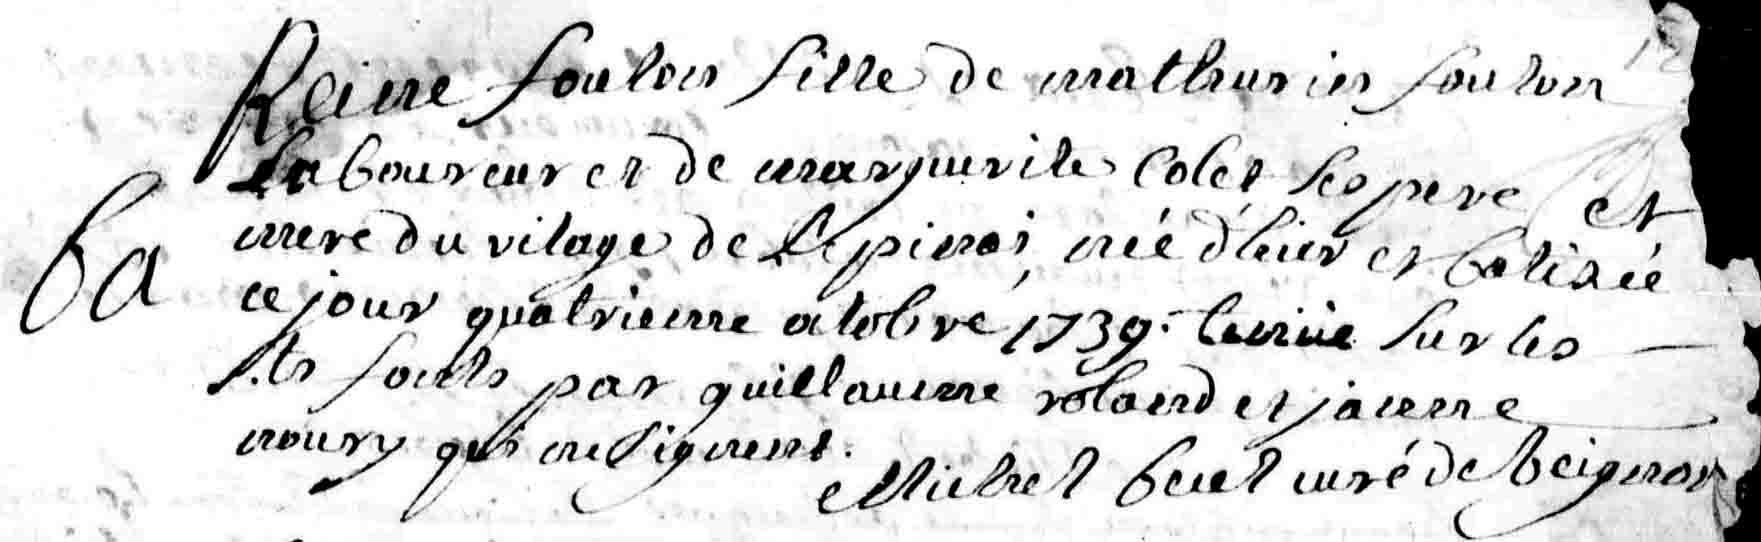 12
Reine foulon fille de mathurin foulon
laboureur et de marguerite Colet ses pere et
mere du vilage de Lepinai, née d'hier et batisée
ba
ce jour quatrieme octobre 1739. tenüe sur les
sts fonts par guillaume roland et jacinne
noury qui ne signent.
Michel cure de Beignon